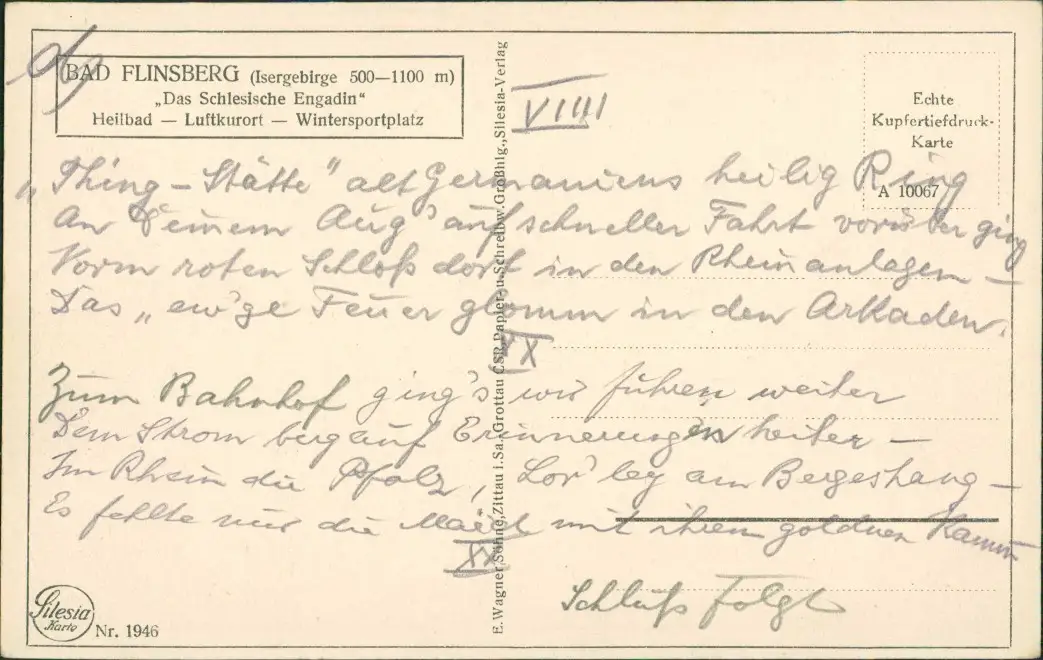 BAD FLINSBERG (Isergebirge 500—1100 m)
„Das Schlesische Engadin“
Heilbad — Luftkurort — Wintersportplatz
Echte
Kupfertiefdruck-
Karte
A 10067
VIIII
„Thing-Stätte" alt Germaniens heilig Ring
An Deinem Aug' auf schneller Fahrt vorüber ging
Vorm roten Schloß dort in den Rheinanlagen —
Das „ew'ge Feuer glomm in den Arkaden.
XX
Zum Bahnhof ging's wir fuhren weiter
Dem Strom bergauf Erinnerungen heiter —
Im Rhein die Pfalz, Lor'ley am Bergeshang —
Es fehlte nur die Maid mit ihrem goldnen Kamm
XX
Schluß folgt
E. Wagner Söhne, Zittau i. Sa., Grottau ČSR, Papier- u. Schreibw. Großhlg., Silesia-Verlag
Silesia
Karte
Nr. 1946